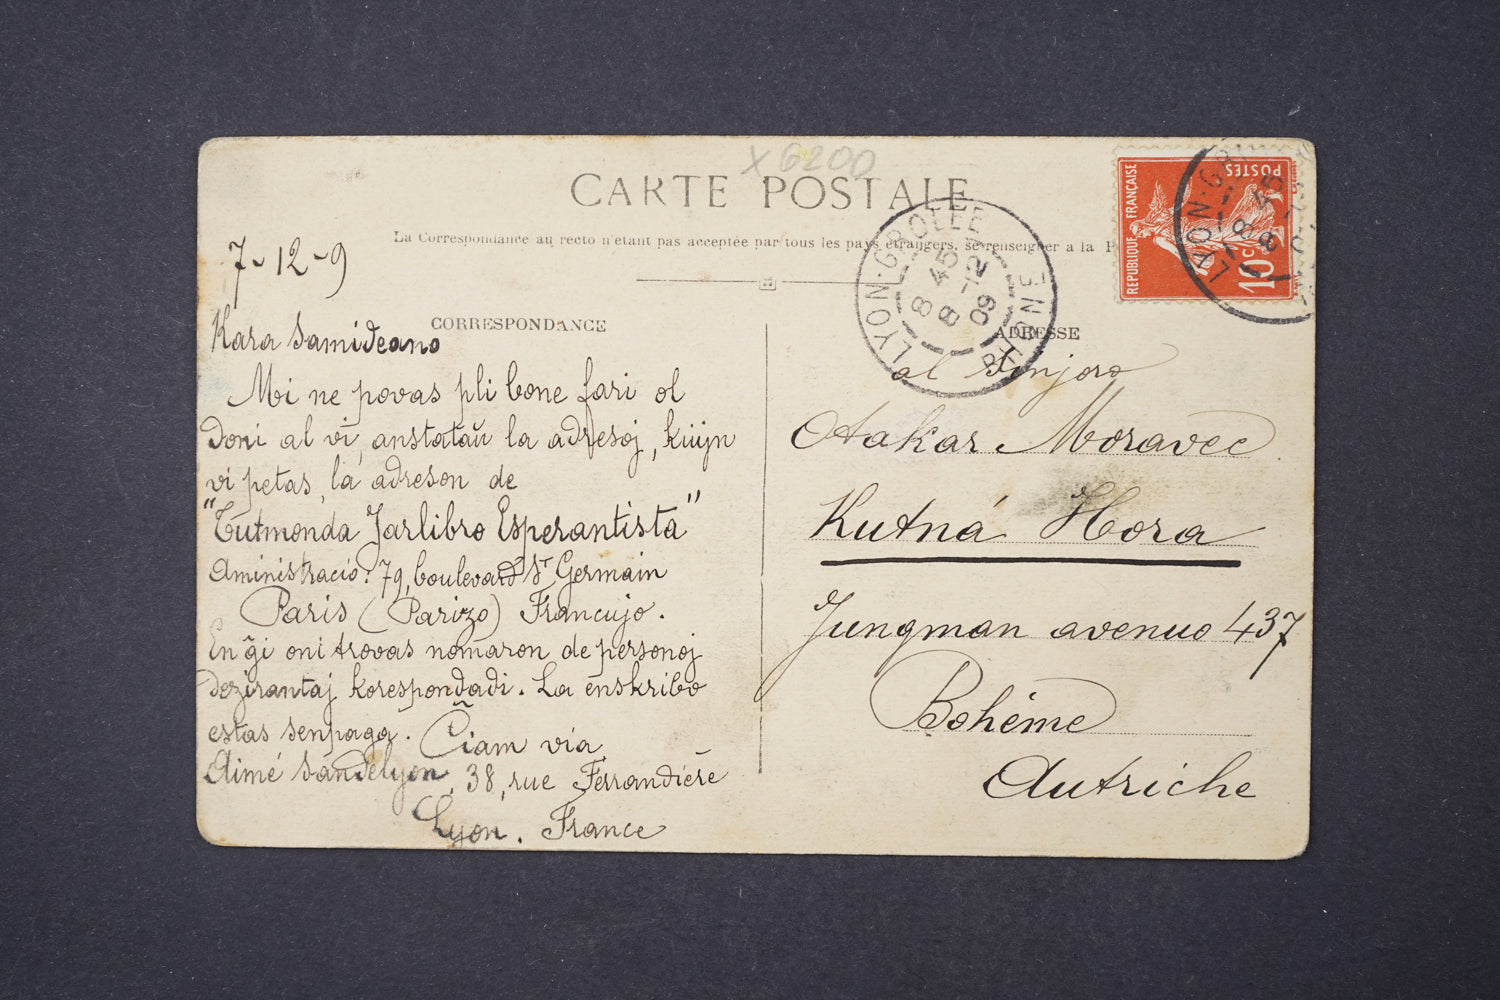 X 6200
CARTE POSTALE
La Correspondance au recto n'étant pas acceptée par tous les pays étrangers, se renseigner a la P
RÉPUBLIQUE FRANÇAISE
POSTES
10c
LYON-GROLÉE
RHONE
8 45
8 -12
09
LYON-GR
8 45
8 -12
7-12-9
CORRESPONDANCE
Kara Samideano
Mi ne povas pli bone fari ol
doni al vi, anstataŭ la adresoj, kiujn
vi petas, la adreson de
"Tutmonda Jarlibro Esperantista"
Aministracio: 79, boulevard St Germain
Paris (Parizo) Francujo.
En ĝi oni trovas nomaron de personoj
dezirantaj korespondadi. La enskribo
estas senpaga. Ĉiam via
Aimé Sandelyon, 38, rue Ferrandière
Lyon. France
ADRESSE
al Sinjoro
Otakar Moravec
Kutná Hora
Jungman avenuo 437
Bohème
Autriche